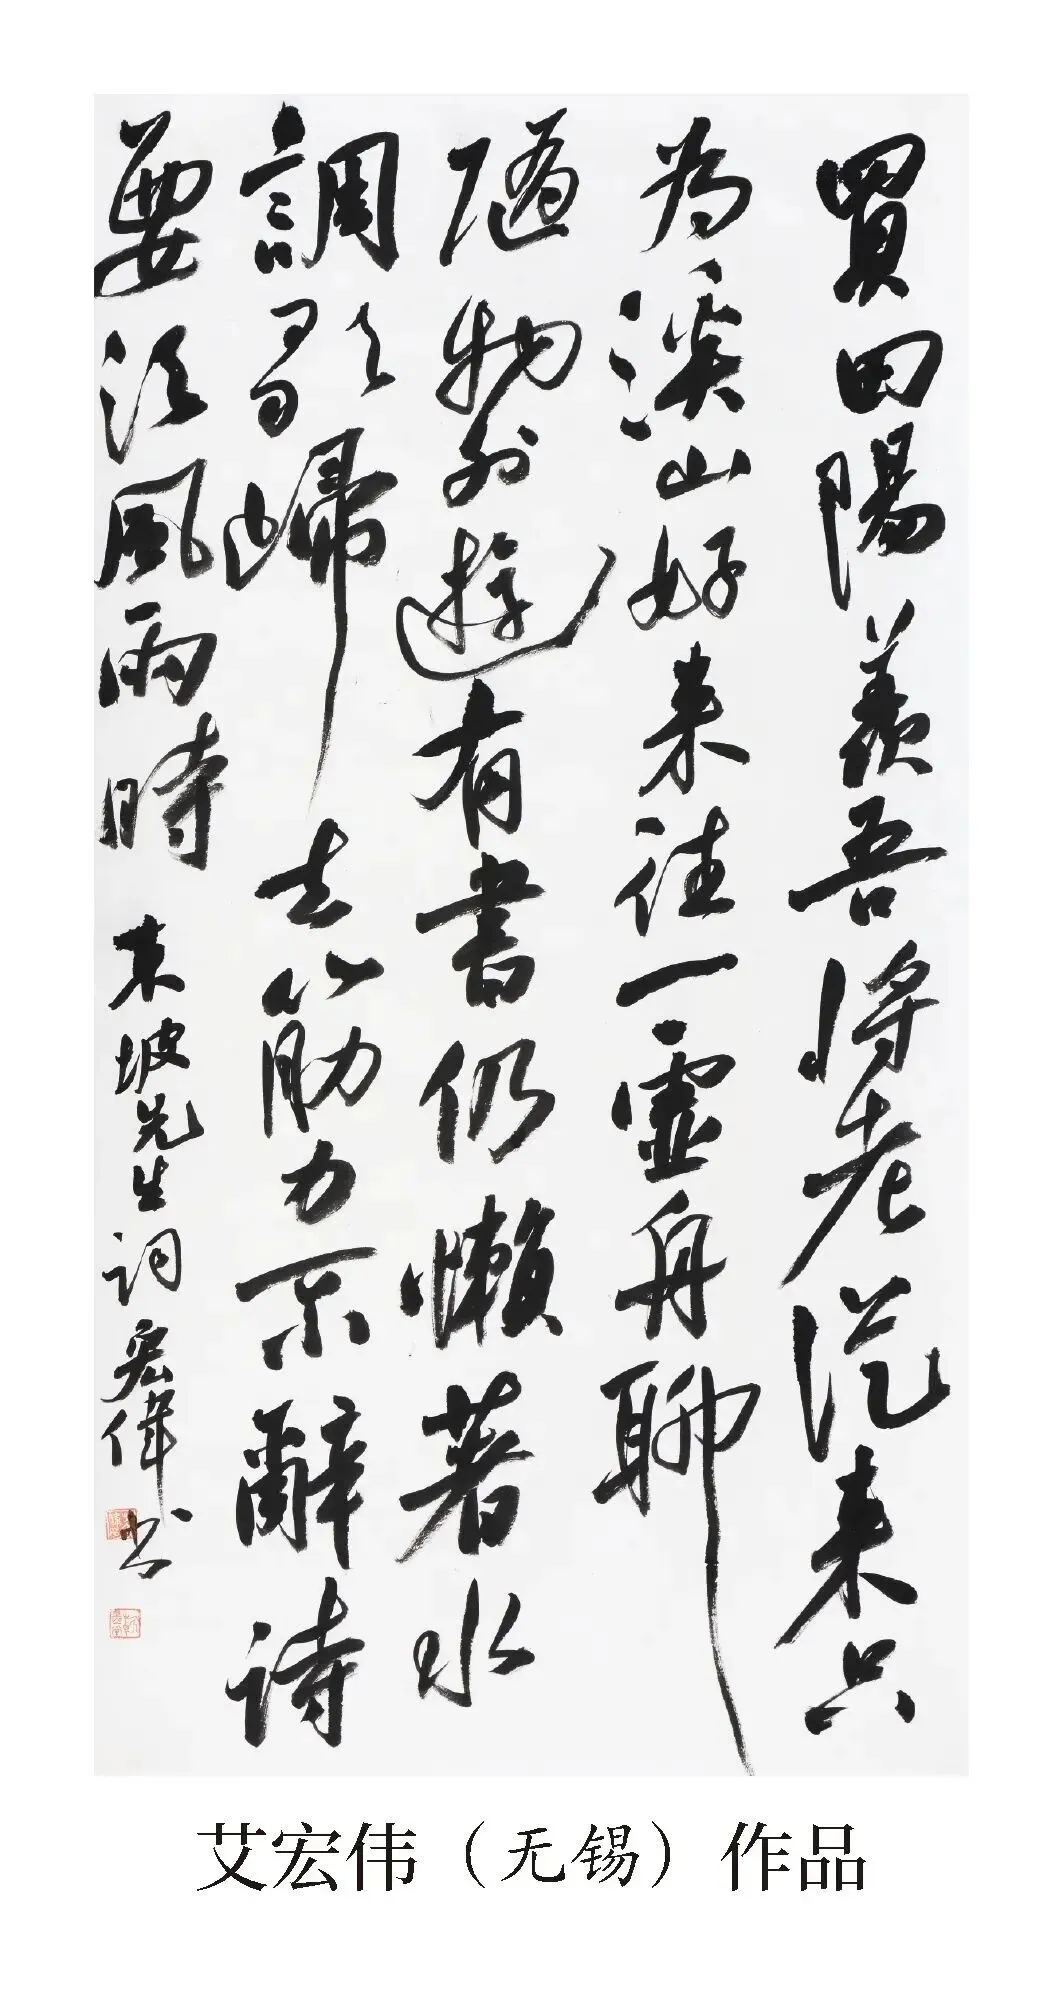 買田陽羨吾将老從来只
为溪山好来往一虚舟聊
随物外遊有書仍懶著水
調歌歸去筋力不辭詩
要須風雨時 東坡先生詞 宏偉书
艾宏伟（无锡）作品